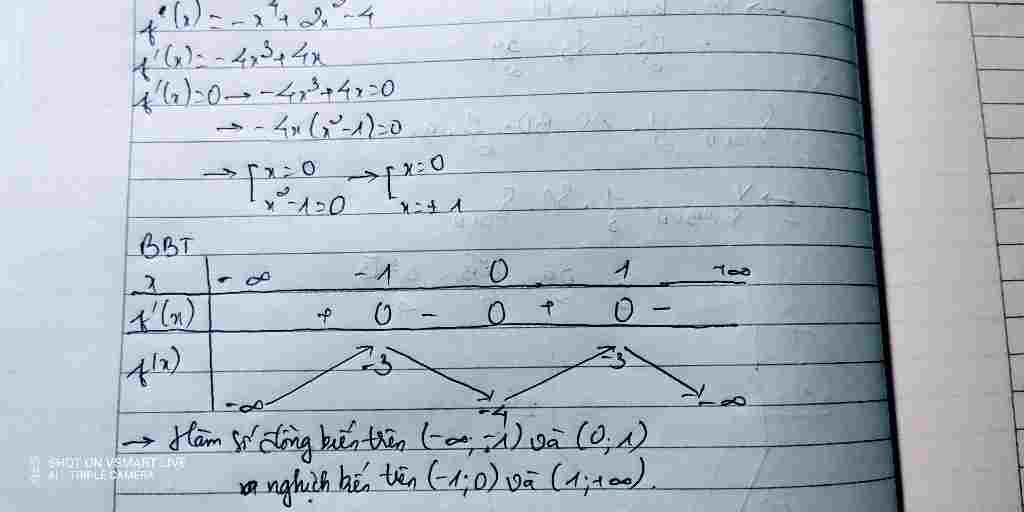 f(x) = -x⁴ + 2x² - 4
f'(x) = -4x³ + 4x
f'(x) = 0 → -4x³ + 4x = 0
→ -4x(x² - 1) = 0
→ [ x = 0 → [ x = 0
x² - 1 = 0 x = ± 1
BBT
x -∞ -1 0 1 +∞
f'(x) + 0 - 0 + 0 -
f(x) -3 -3
-∞ -4 -∞
→ Hàm số đồng biến trên (-∞; -1) và (0; 1)
nghịch biến trên (-1; 0) và (1; +∞).
SHOT ON VSMART LIVE
AI TRIPLE CAMERA